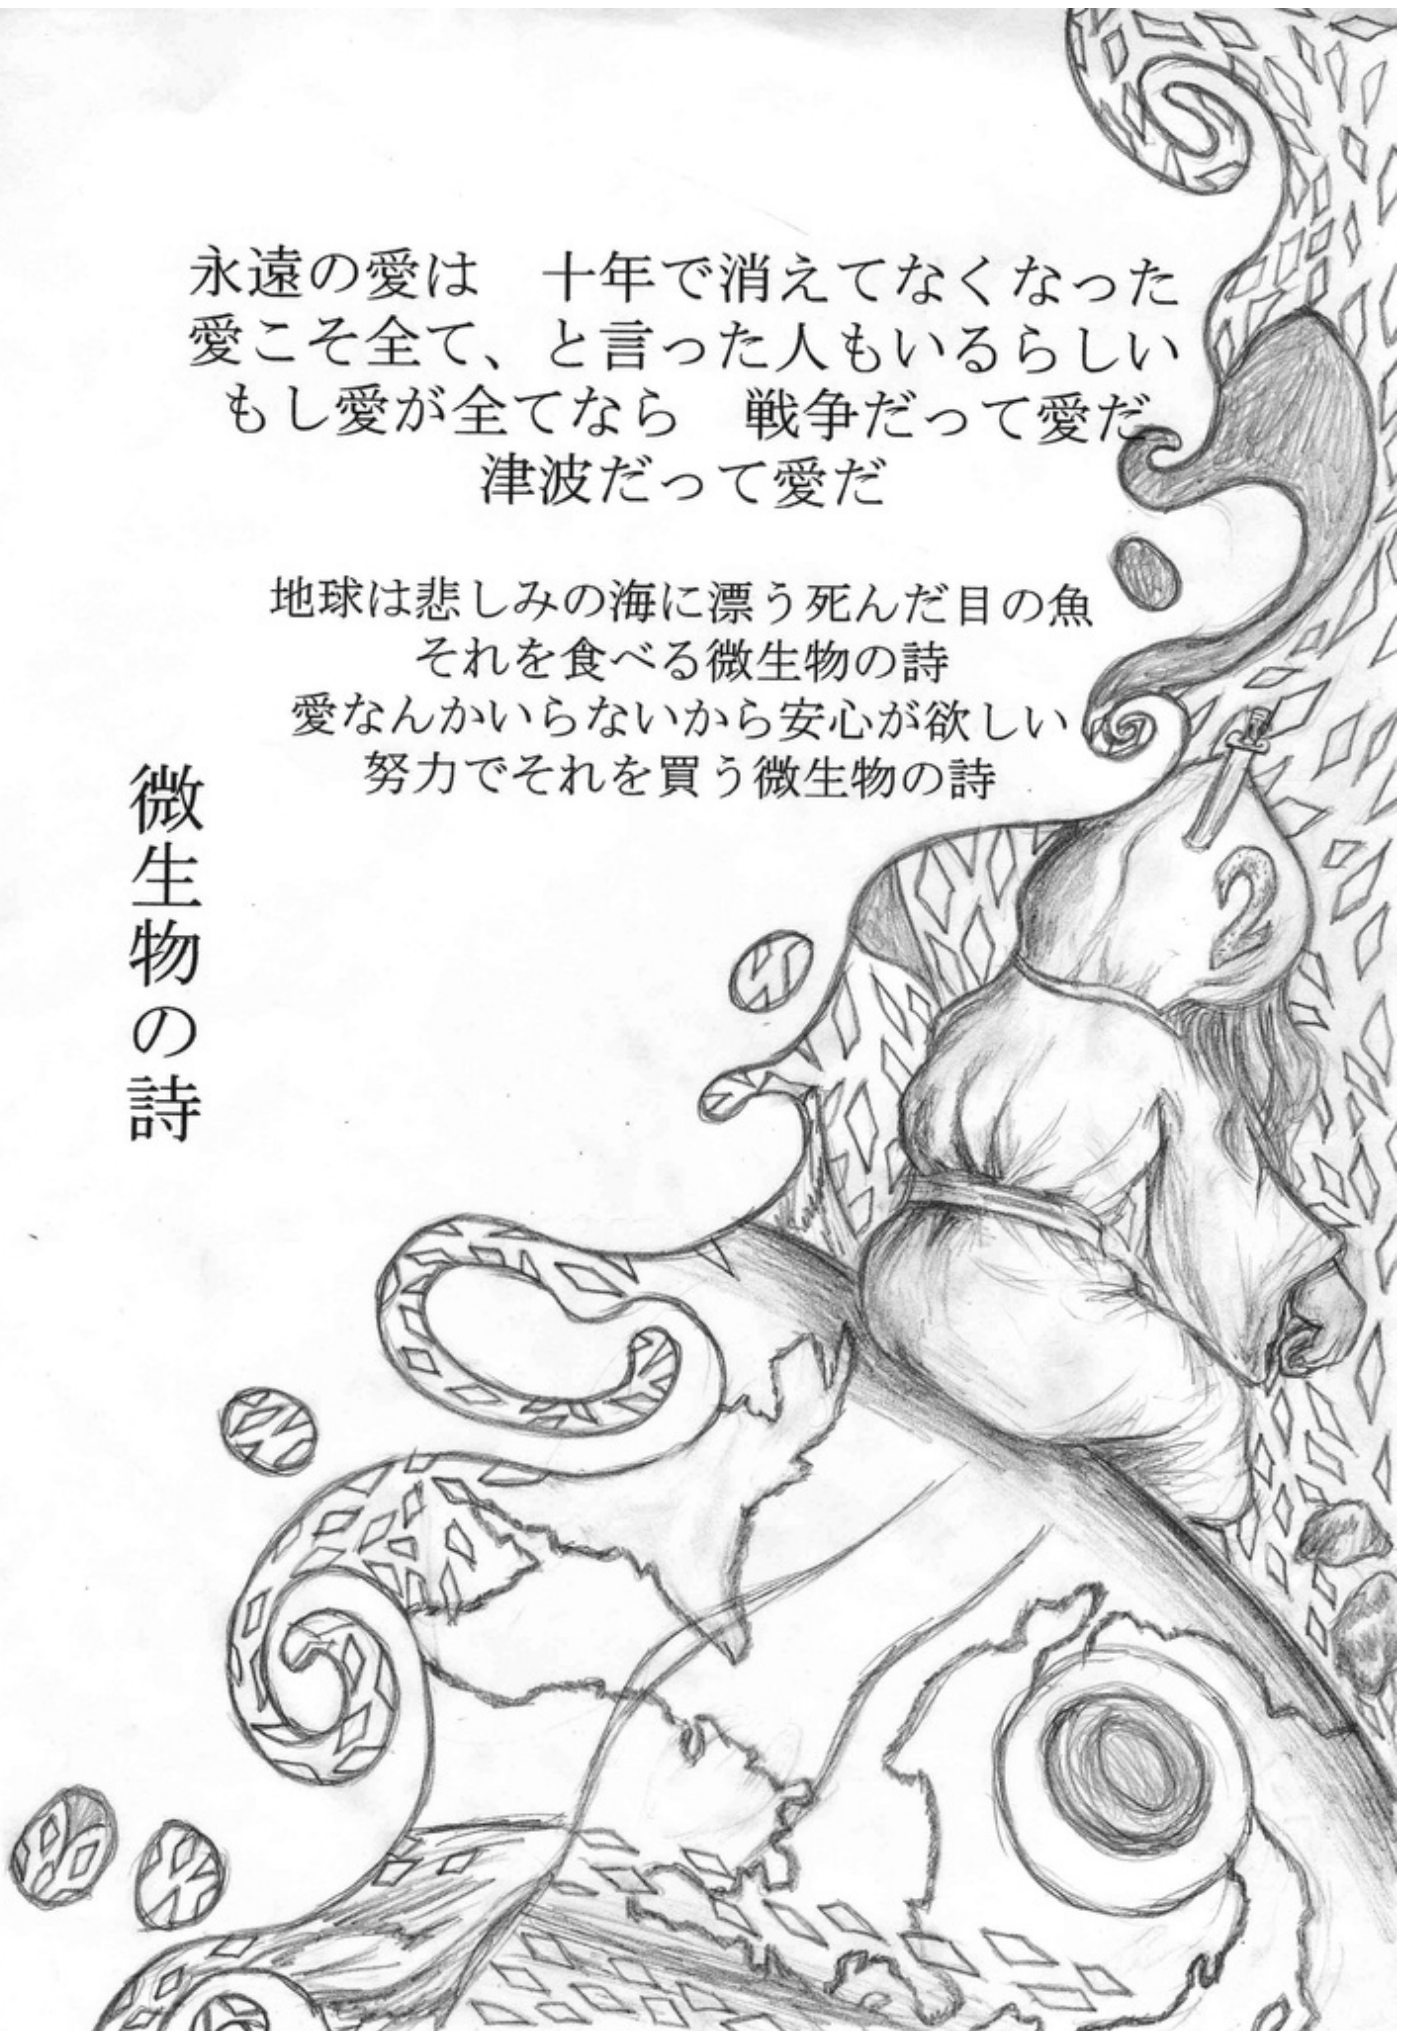 永遠の愛は　十年で消えてなくなった
愛こそ全て、と言った人もいるらしい
もし愛が全てなら　戦争だって愛だ
津波だって愛だ
地球は悲しみの海に漂う死んだ目の魚
それを食べる微生物の詩
愛なんかいらないから安心が欲しい
努力でそれを買う微生物の詩
微生物の詩
2